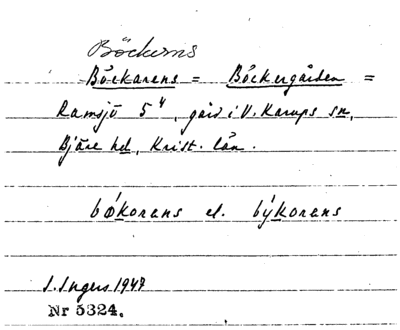 Böckerns
Böckarens = Böckergården =
Ramsjö 5⁴, gård i V. Karups sn,
Bjäre hd, Krist. län.
bǿkorens el. býkorens
I. Ingers 1947
Nr 5324.